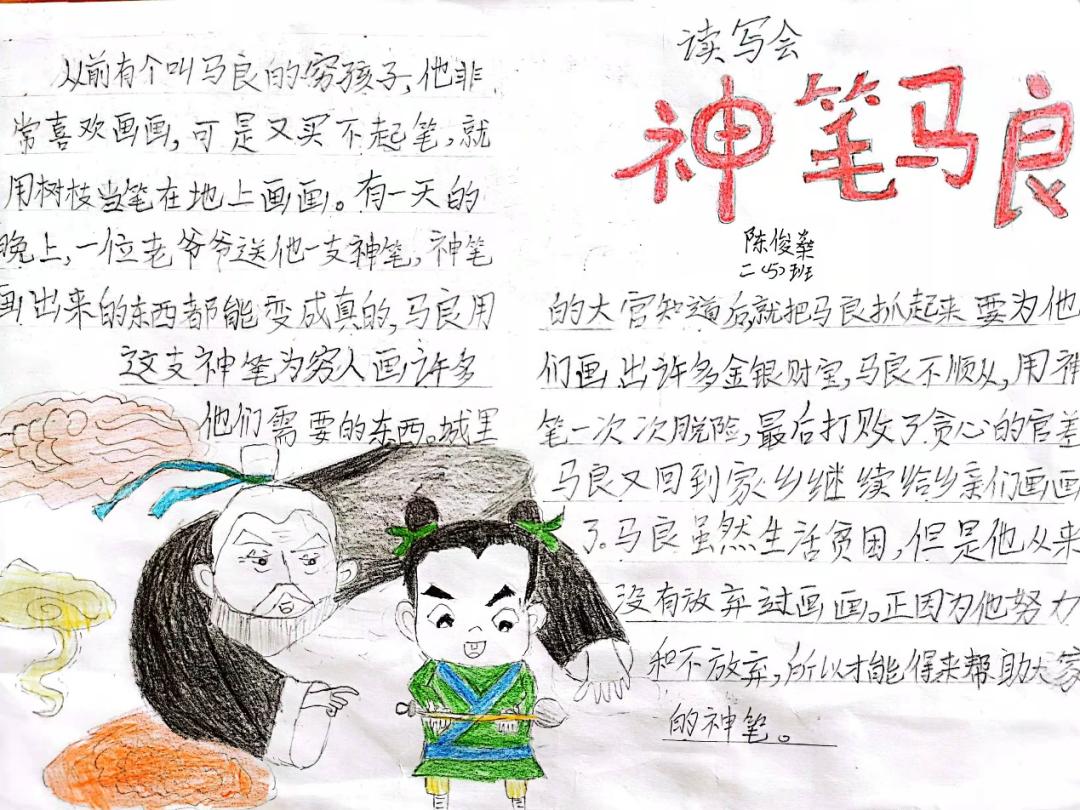 读写会
神笔马良
陈俊燊
二（5）班
从前有个叫马良的穷孩子，他非
常喜欢画画，可是又买不起笔，就
用树枝当笔在地上画画。有一天的
晚上，一位老爷爷送他一支神笔，神笔
画出来的东西都能变成真的，马良用
这支神笔为穷人画许多
他们需要的东西。城里
的大官知道后，就把马良抓起来要为他
们画出许多金银财宝，马良不顺从，用神
笔一次次脱险，最后打败了贪心的官差
马良又回到家乡继续给乡亲们画画
了。马良虽然生活贫困，但是他从来
没有放弃过画画。正因为他努力
和不放弃，所以才能得来帮助大家
的神笔。